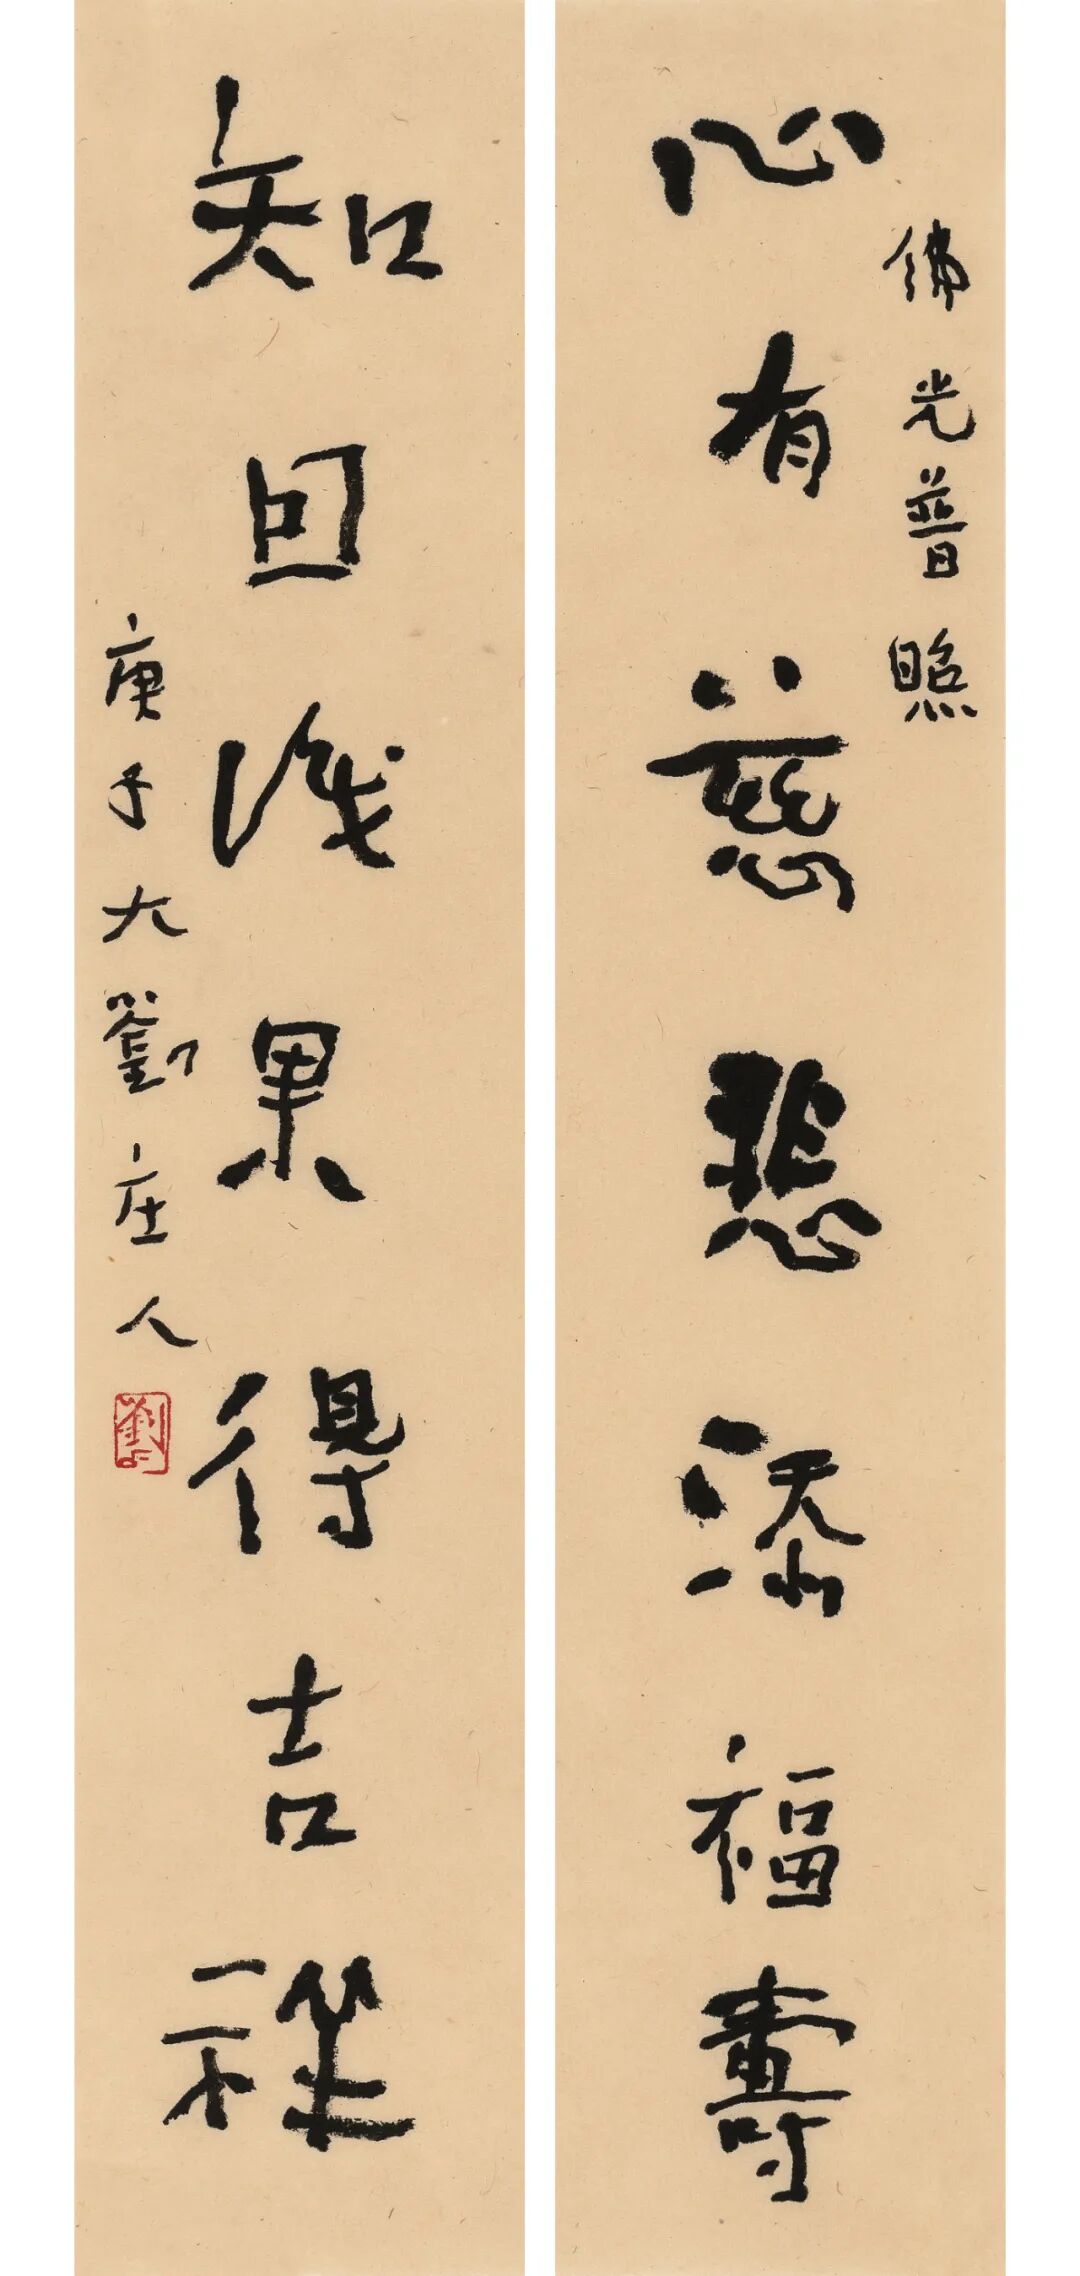 佛光普照
心有慈悲添福壽
知因識果得吉祥
庚子大劉庄人